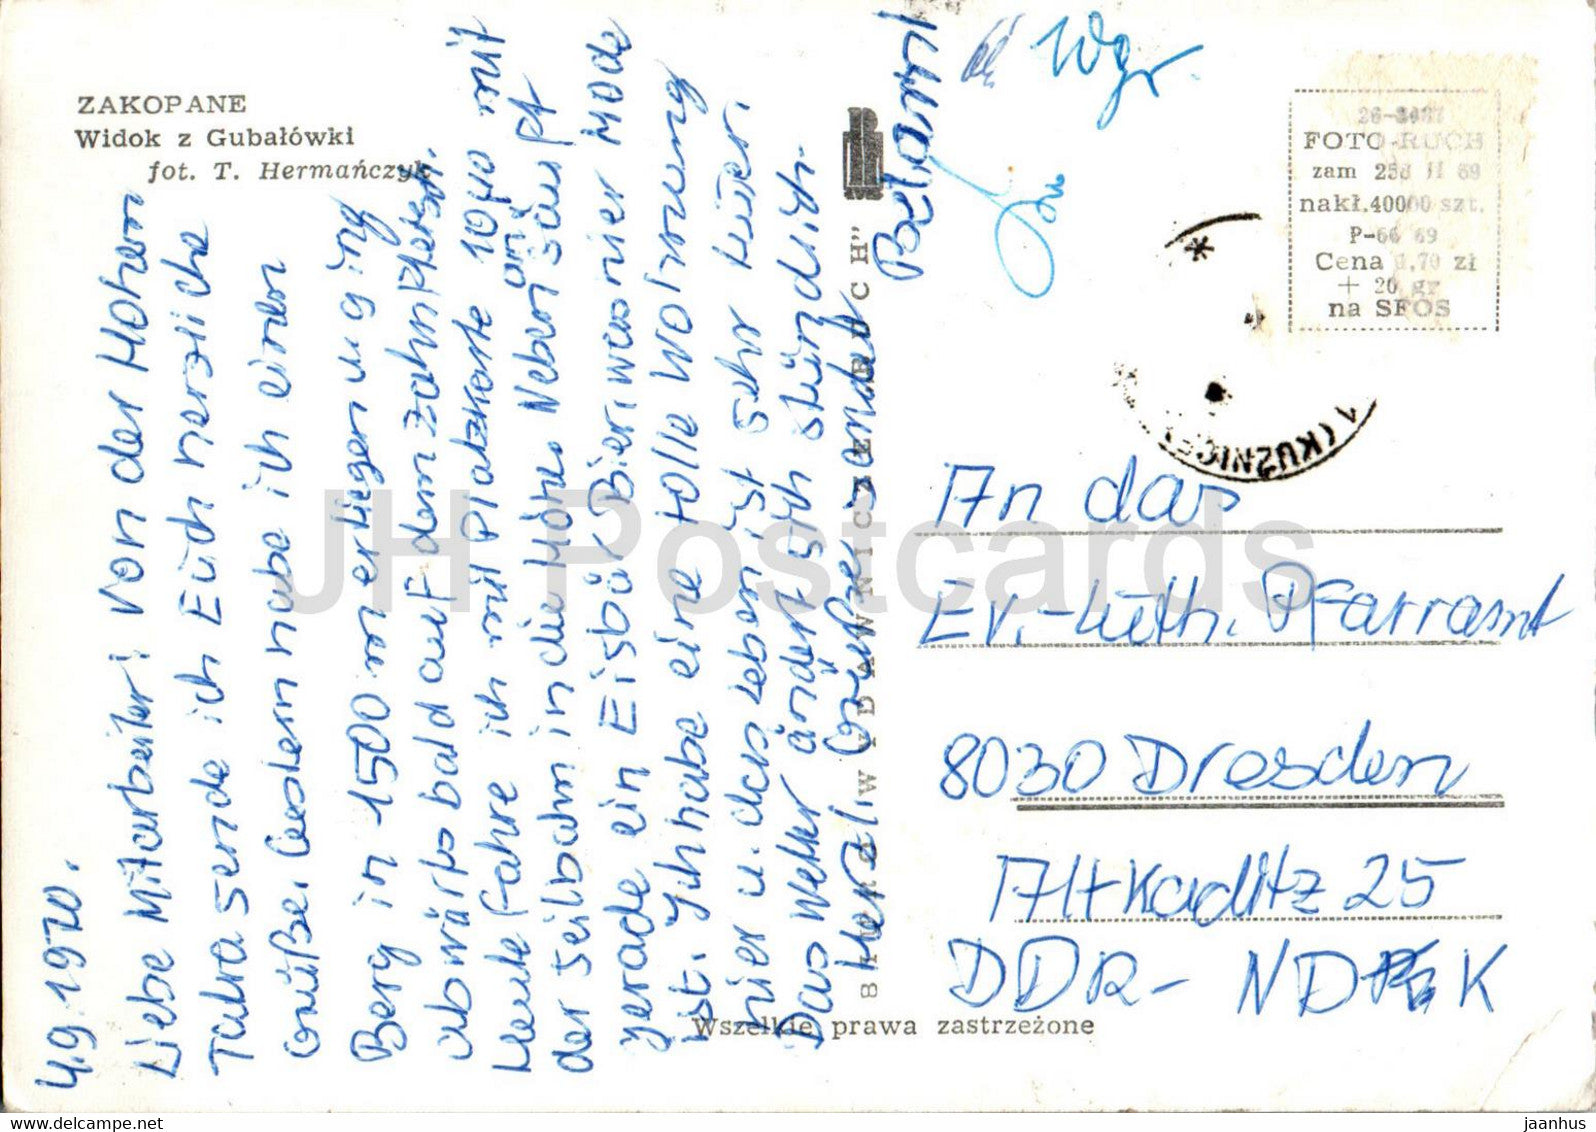 ZAKOPANE
Widok z Gubałówki
fot. T. Hermańczyk
4.9.1970.
Liebe Mitarbeiter! Von der Hohen
Tatra sende ich Euch herzliche
Grüße. Gestern habe ich einen
Berg in 1500 m erliegen u. ging
abwärts bald auf dem Zahnfleisch.
Heute fahre ich mit Platzkarte 10 Uhr mit
der Seilbahn in die Höhe. Neben mir säuft
gerade ein Eisbär Bier, was hier Mode
ist. Ich habe eine tolle Wohnung
hier u. das Leben ist sehr
Das Wetter ändert sich stündlich.
Herzl. Grüße sendet
BIURO WYDAWNICZE "RUCH"
Wszelkie prawa zastrzeżone
10gr.
26-3487
FOTO-RUCH
zam 258 II 69
nakł. 40000 szt.
P-66 69
Cena 1,70 zł
+ 20 gr
na SFOS
1 (KUŹNICE)
An das
Ev.-Luth. Pfarramt
8030 Dresden
Altkaditz 25
DDR - NDR K
JH Postcards
jaanhus
www.delcampe.net